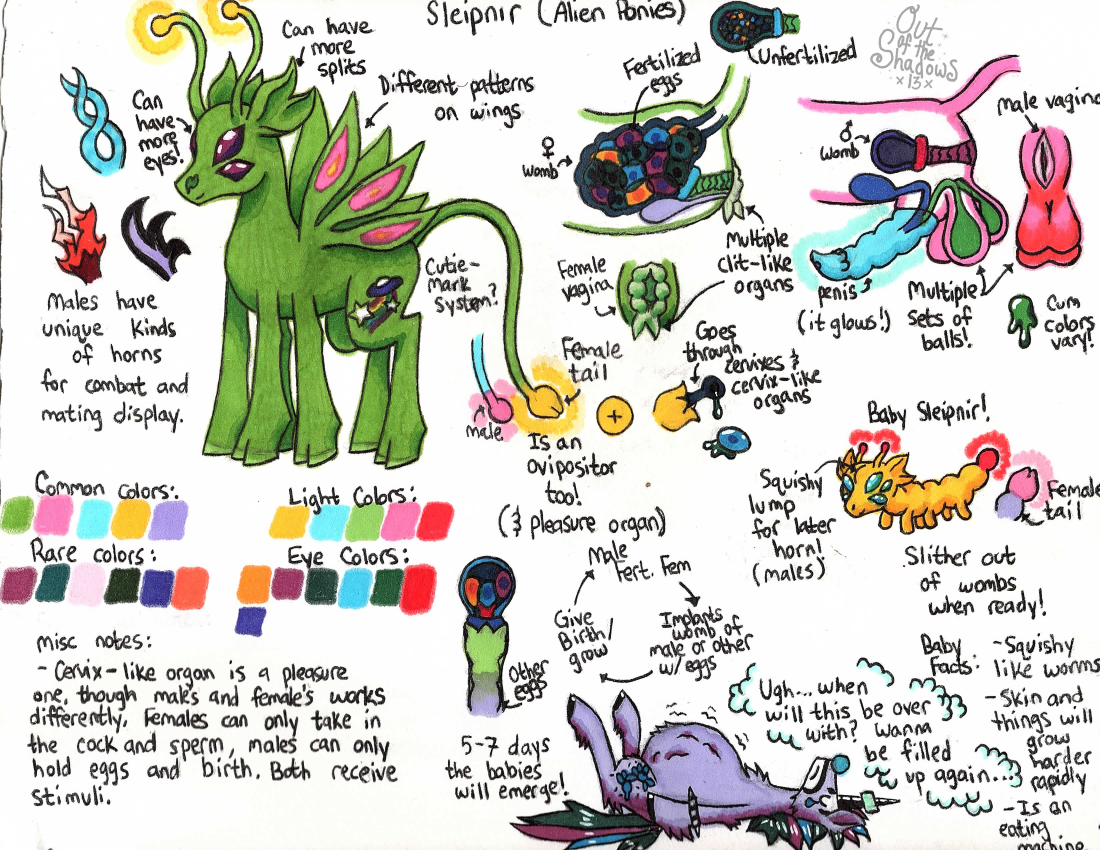 Sleipnir (Alien Ponies)
Out
of the
Shadows
x13x
Can have
more
splits
Different patterns
on wings
Can
have
more
eyes!
Males have
unique kinds
of horns
for combat and
mating display.
Cutie-
mark
system?
Fertilized
eggs
Unfertilized
♀
womb
Multiple
clit-like
organs
Female
vagina
♂
womb
male vagina
penis
(it glows!)
Multiple
sets of
balls!
Cum
colors
vary!
Female
tail
male
Is an
ovipositor
too!
(& pleasure organ)
+
Goes
through
cervixes &
cervix-like
organs
Baby Sleipnir!
Squishy
lump
for later
horn!
(males)
Female
tail
Slither out
of wombs
when ready!
Common colors:
Light Colors:
Rare colors:
Eye Colors:
misc notes:
- Cervix-like organ is a pleasure
one, though males and female's works
differently. Females can only take in
the cock and sperm, males can only
hold eggs and birth. Both receive
stimuli.
Other
eggs
5-7 days
the babies
will emerge!
Male
Fert. Fem
Implants
womb of
male or other
w/ eggs
Give
Birth/
grow
Ugh... when
will this be over
with? Wanna
be filled
up again...
Baby
Facts:
- Squishy
like worms
- Skin and
things will
grow
harder
rapidly
- Is an
eating
machine